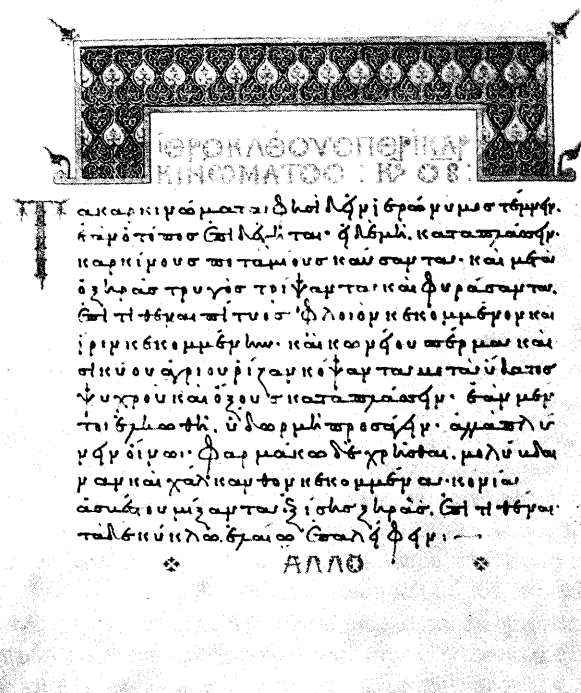 ἹΕΡΟΚΛΕΟΥΣ ΠΕΡῚ ΚΑΡ
ΚΙΝΩΜΑΤΟΣ : Κ ΟΒ :
Τὰ καρκινώματα φησὶ δεῖν ἱερώνυμος τέμνειν.
κἂν ὁ τόπος ἐπιδέχηται· εἰ δὲ μὴ, καταπλάσσειν·
καρκίνους ποταμίους καύσαντα· καὶ μετὰ
ὀξηρᾶς τρυγὸς τρίψαντα· καὶ φυράσαντα.
ἐπιτιθέναι πίτυος φλοιὸν κεκομμένον καὶ
ἶριν κεκομμένην· καὶ κωνείου σπέρμα καὶ
σικύου ἀγρίου ῥίζαν κόψαντα μετὰ ὕδατος
ψυχροῦ καὶ ὄξους καταπλάσσειν· ἐὰν μέν
τοι ἑλκωθῆ, ὕδωρ μὴ προσάγειν· ἀλλὰ πλύ
νειν οἴνω· φαρμάκω δὲ χρῆσθαι, μολύβδαι
ναν καὶ χάλκανθον κεκομμέναν· κονίαν
ἀσβέστου μίξαντα ἐξ ἴσης ξηρᾶς. ἐπιτιθέναι
τὰ δὲ κύκλω, ἐλαίω ἐπαλείφειν :
ΑΛΛΟ